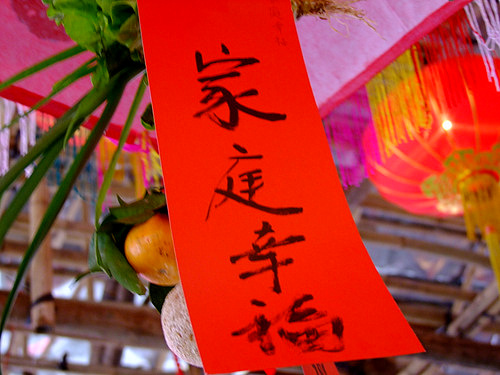 家庭幸福